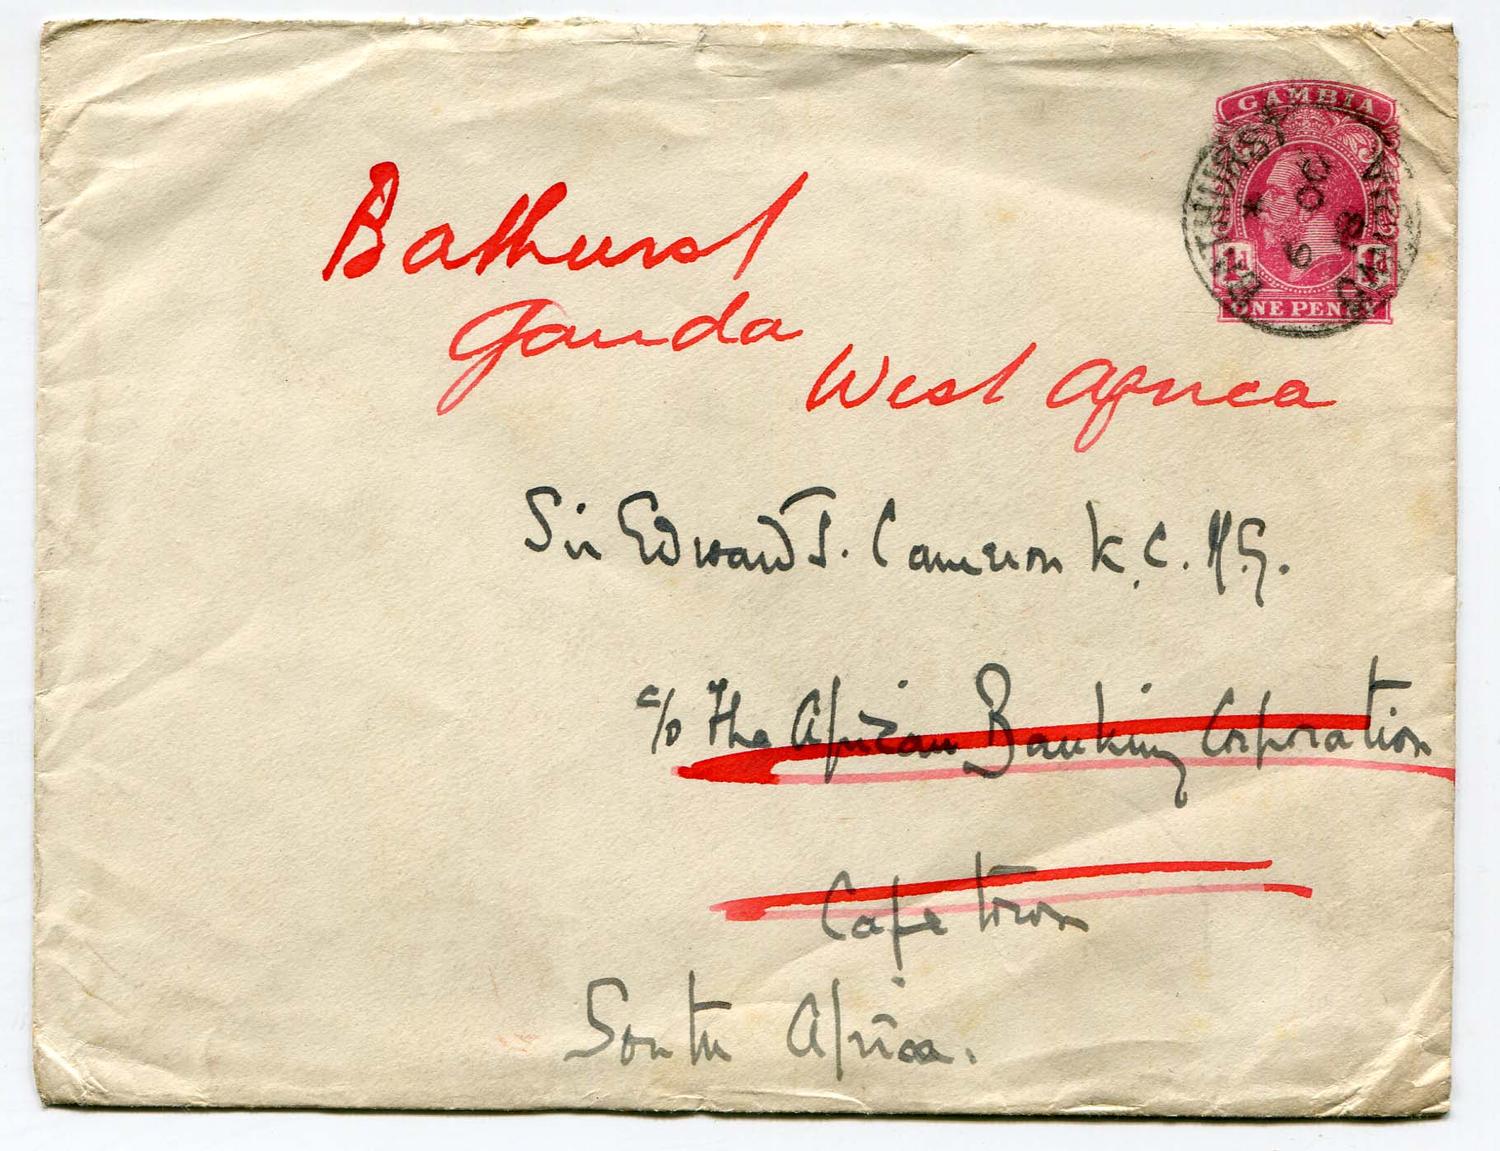 GAMBIA
1d 1d
ONE PENNY
BATHURST
Bathurst
Ganda
West Africa
Sir Edward J. Cameron K.C.M.G.
c/o The African Banking Corporation
Cape town
South Africa.